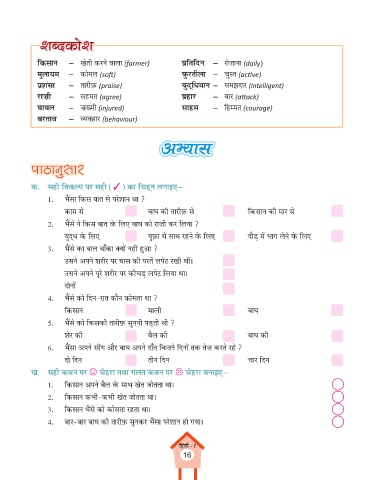 शब्दकोश
किसान – खेती करने वाला (farmer) प्रतिदिन – रोज़ाना (daily)
मुलायम – कोमल (soft) फुरतीला – चुस्त (active)
प्रशंसा – तारीफ़ (praise) बुद्धिमान – समझदार (intelligent)
राज़ी – सहमत (agree) प्रहार – वार (attack)
घायल – ज़ख्मी (injured) साहस – हिम्मत (courage)
बरताव – व्यवहार (behaviour)
अभ्यास
पाठानुसार
क. सही विकल्प पर सही (✓) का चिह्न लगाइए–
1. भैंसा किस बात से परेशान था ?
काम से बाघ की तारीफ़ से किसान की मार से
2. भैंसे ने किस बात के लिए बाघ को राज़ी कर लिया ?
युद्ध के लिए गुफ़ा में साथ रहने के लिए दौड़ में भाग लेने के लिए
3. भैंसे का बाल बाँका क्यों नहीं हुआ ?
उसने अपने शरीर पर घास की परतें लपेट रखी थीं।
उसने अपने पूरे शरीर पर कीचड़ लपेट लिया था।
दोनों
4. भैंसे को दिन-रात कौन कोसता था ?
किसान माली बाघ
5. भैंसे को किसकी तारीफ़ सुननी पड़ती थी ?
शेर की बैल की बाघ की
6. भैंसा अपने सींग और बाघ अपने दाँत कितने दिनों तक तेज़ करते रहे ?
दो दिन तीन दिन चार दिन
ख. सही कथन पर ☺ चेहरा तथा गलत कथन पर ☹ चेहरा बनाइए–
1. किसान अपने बैल के साथ खेत जोतता था।
2. किसान कभी-कभी खेत जोतता था।
3. किसान भैंसे को कोसता रहता था।
4. बार-बार बाघ की तारीफ़ सुनकर भैंसा परेशान हो गया।
हिंदी-7
16